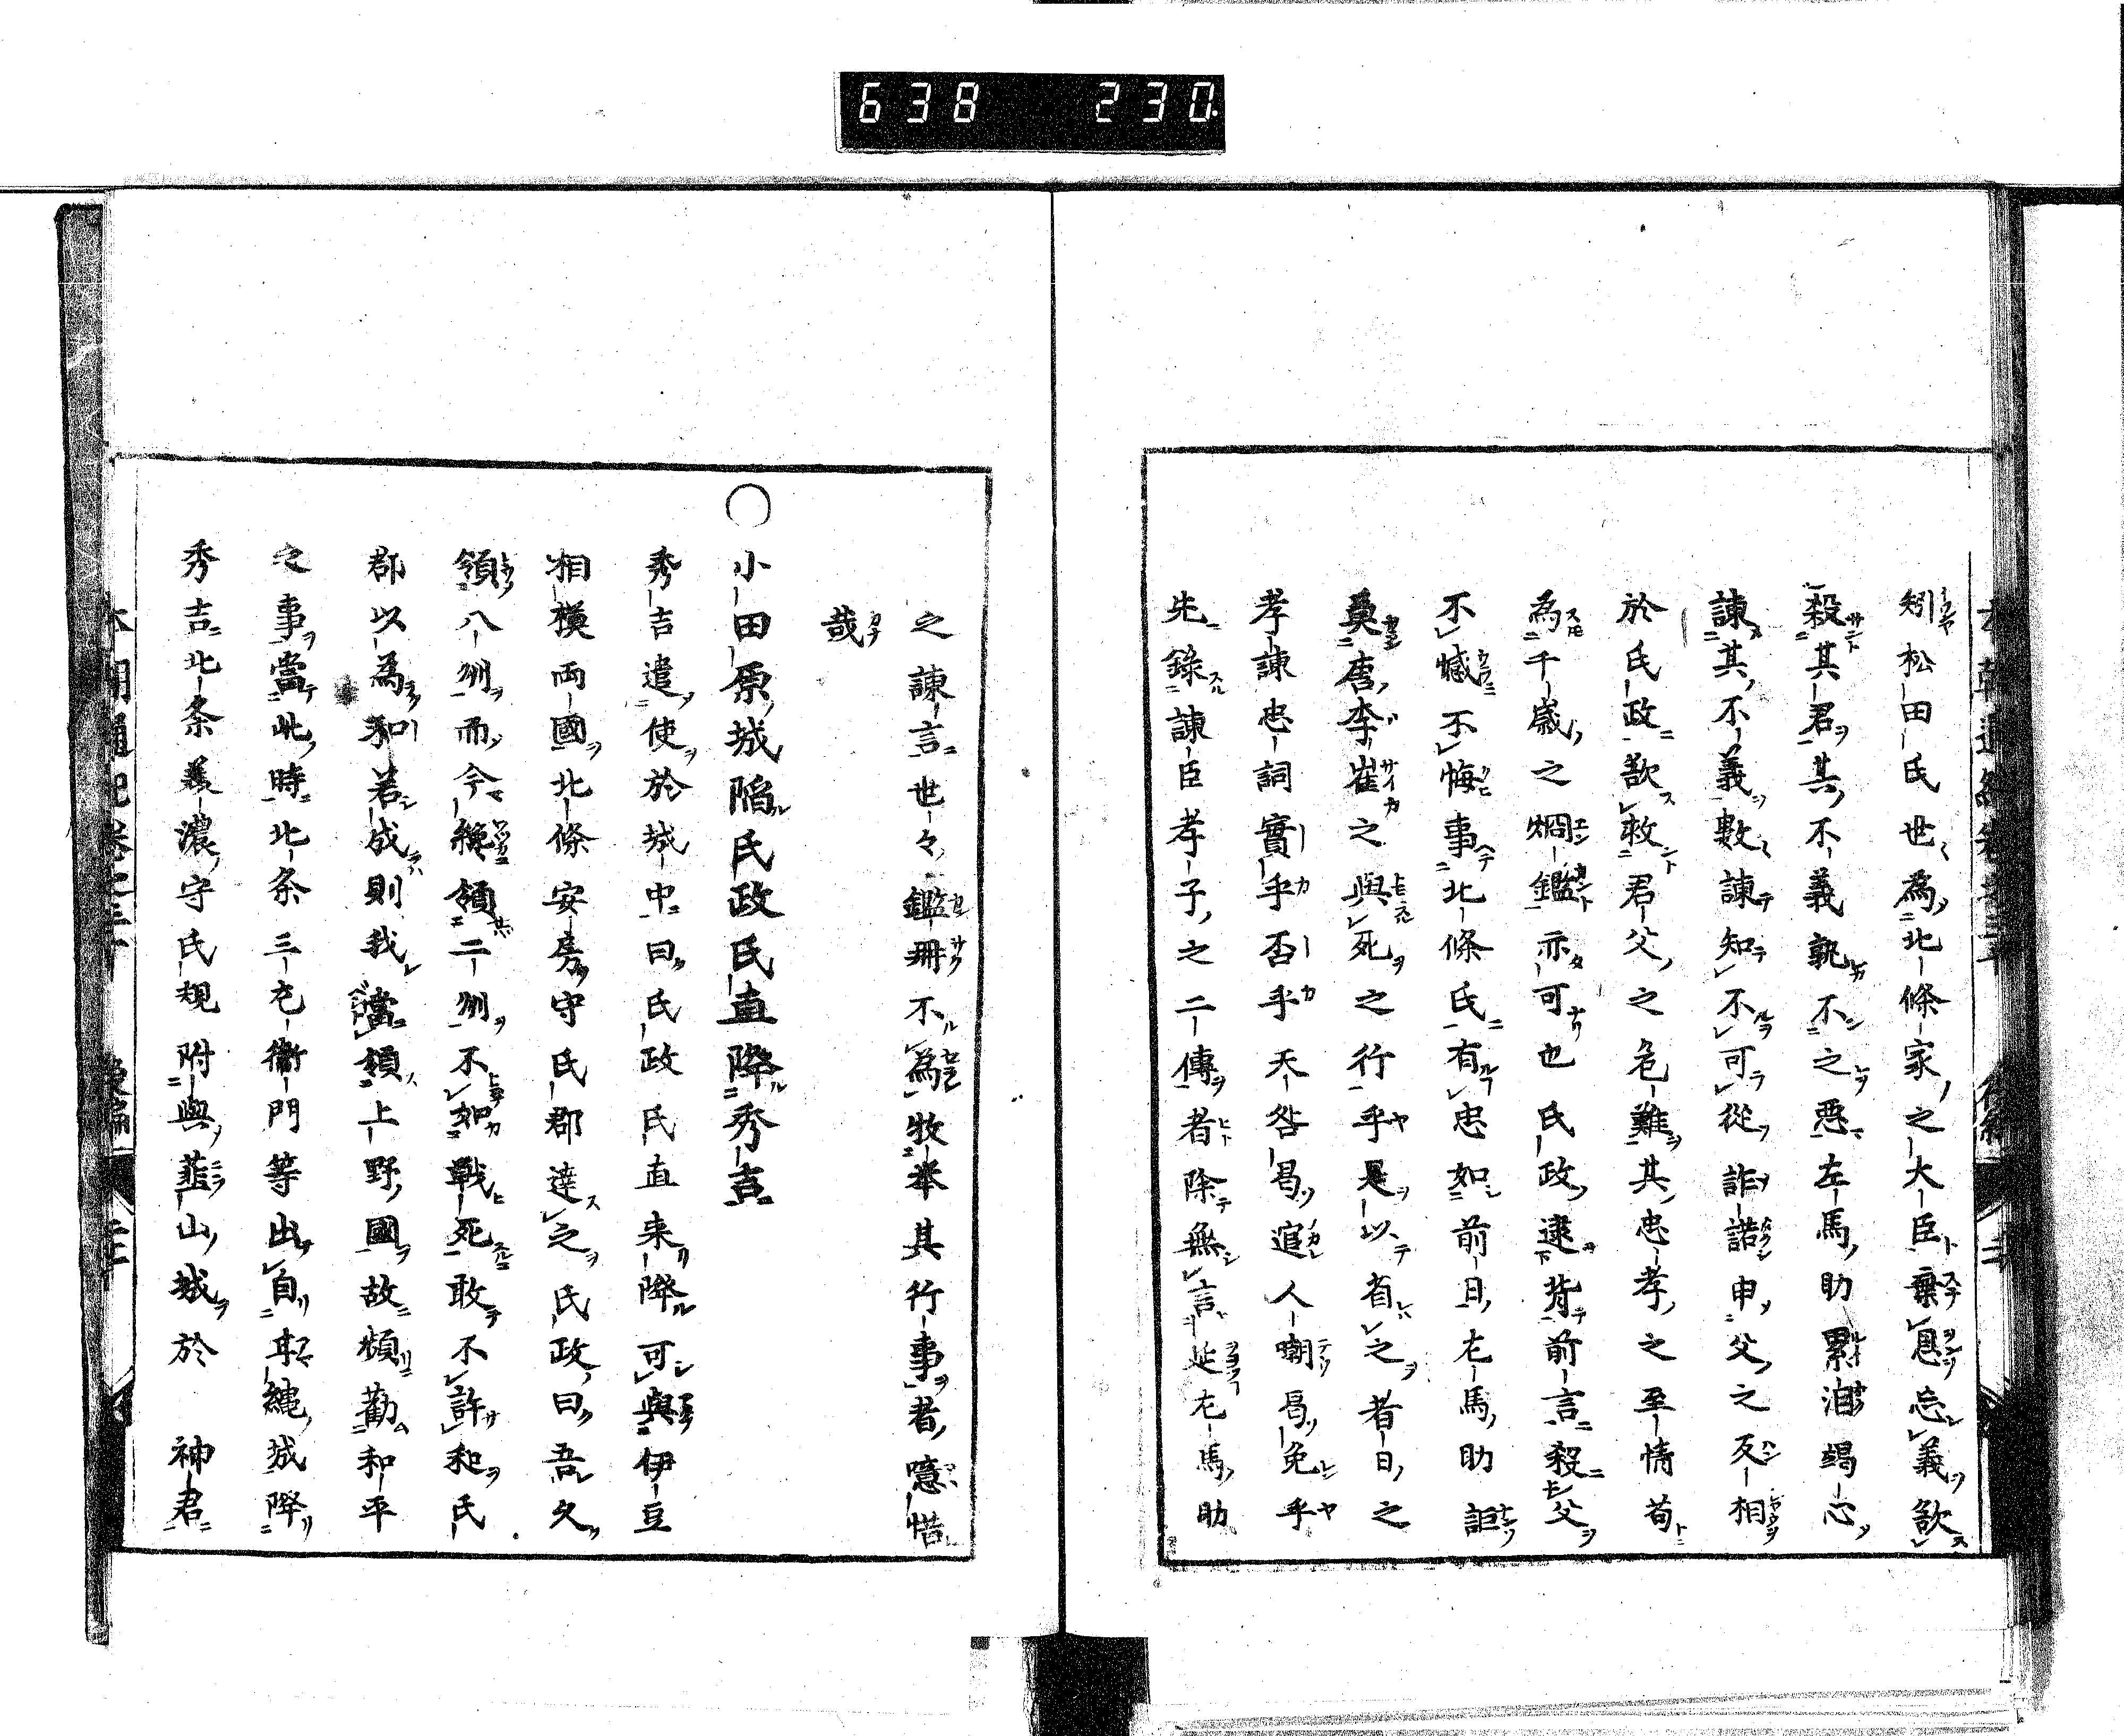 638 230
矧松田氏世々為北條家之大臣棄恩忘義欲
殺其君其不義孰不之惡左馬助累泪竭心
諫其不義數諫知不可從詐諾申父之反相
於氏政欲救君父之危難其忠孝之至情苟
為千歳之烱鑑亦可也氏政逮背前言殺父
不憾不悔事北條氏有忠如前日左馬助詎
奠唐李崔之與死之行乎是以省之者曰之
孝諫忠詞實乎否乎天咎曷逭人嘲曷免乎
先錄諫臣孝子之二傳者除無言是左馬助
之諫言世々鑑冊不為牧挙其行事者噫惜
哉
○小田原城陥氏政氏直降秀吉
秀吉遣使於城中曰氏政氏直来降可與伊豆
相模両國北條安房守氏郡達之氏政曰吾久
領八州而今纔領二州不如戰死敢不許和氏
郡以為和若成則我當領上野國故頻勸和平
之事當此時北条三左衞門等出自皈縄城降
秀吉北条義濃守氏規附與韮山城於 神君